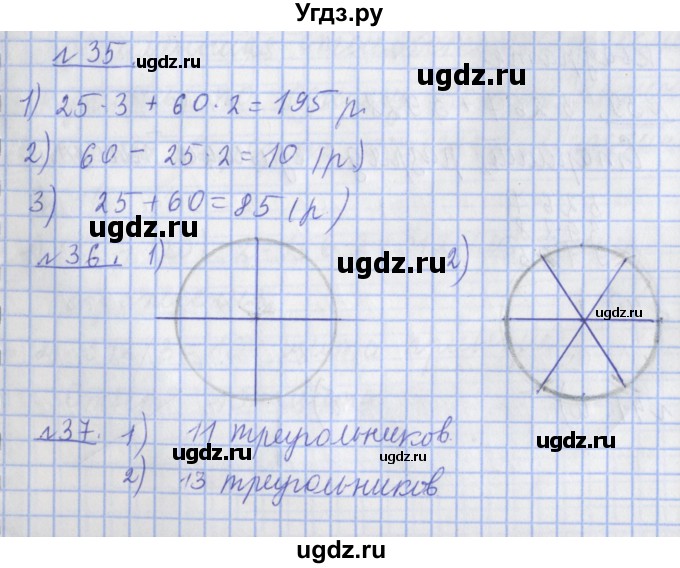 Угдз.ру
№35. ugdz.ru ugdz.ru
1) 25·3 + 60·2 = 195 р.
2) 60 - 25·2 = 10 (р.)
3) 25 + 60 = 85 (р)
ugdz.ru
№36. 1) ugdz.ru 2)
ugdz.ru
№37. 1) 11 треугольников.
ugdz.ru ugdz.ru ugdz.ru
2) 13 треугольников
ugdz.ru